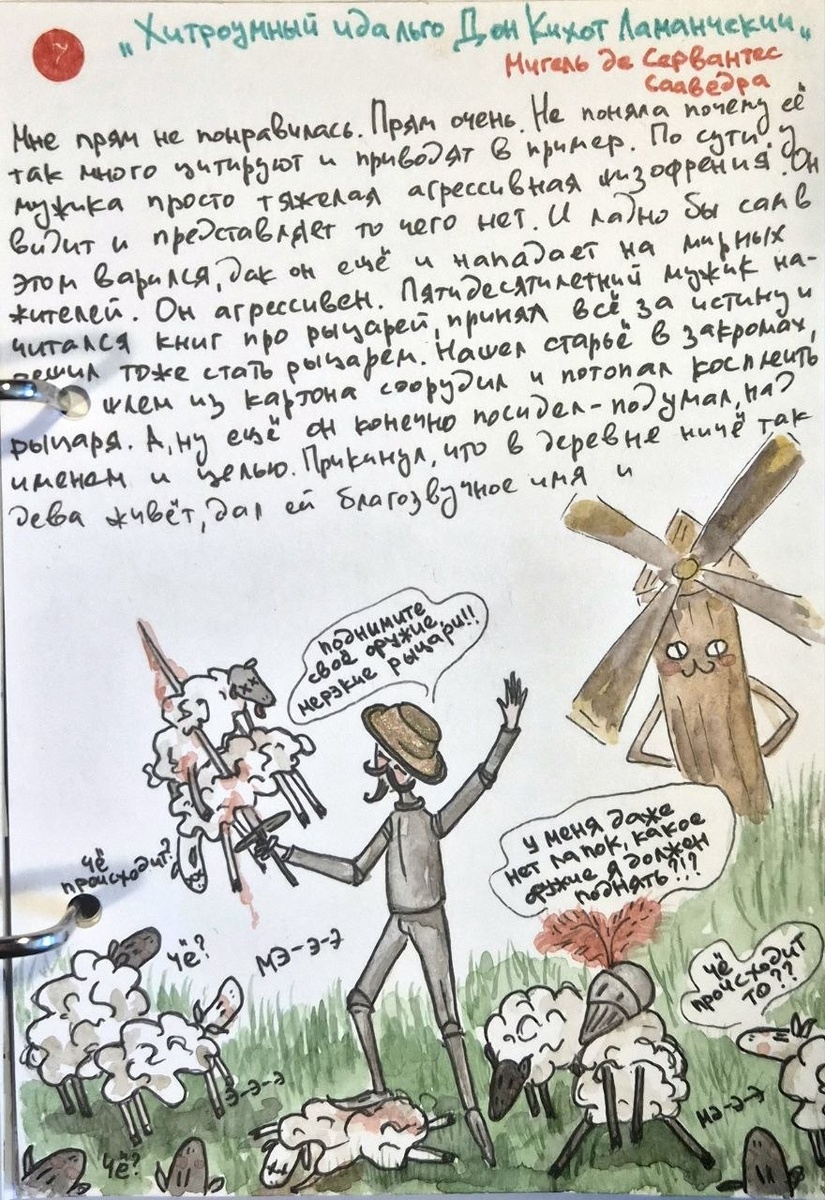 7
„Хитроумный идальго Дон Кихот Ламанчский„
Мигель де Сервантес
Сааведра
Мне прям не понравилась. Прям очень. Не поняла почему её
так много цитируют и приводят в пример. По сути у
мужика просто тяжелая агрессивная шизофрения. Он
видит и представляет то чего нет. И ладно бы сам в
этом варился, дак он ещё и нападает на мирных
жителей. Он агрессивен. Пятидесятилетний мужик на-
читался книг про рыцарей, принял всё за истину и
решил тоже стать рыцарем. Нашел старьё в закромах,
шлем из картона соорудил и потопал косплеить
рыцаря. А, ну ещё он конечно посидел-подумал, над
именем и целью. Прикинул, что в деревне ничё так
дева живёт, дал ей благозвучное имя и
поднимите
своё оружие,
мерзкие рыцари!!
у меня даже
нет лапок, какое
оружие я должен
поднять?!?
чё
происходит?
чё?
мэ-э-э
чё
происходит
то??
э-э-э
мэ-э-э
чё?